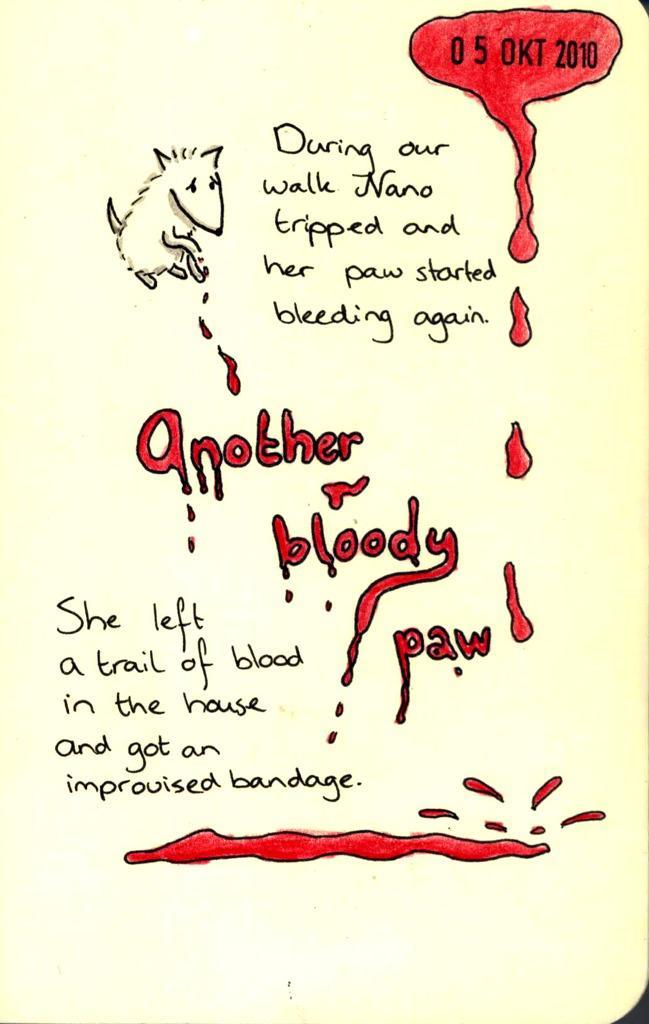 05 OKT 2010
During our
walk Nano
tripped and
her paw started
bleeding again.
another
bloody
paw
She left
a trail of blood
in the house
and got an
improvised bandage.